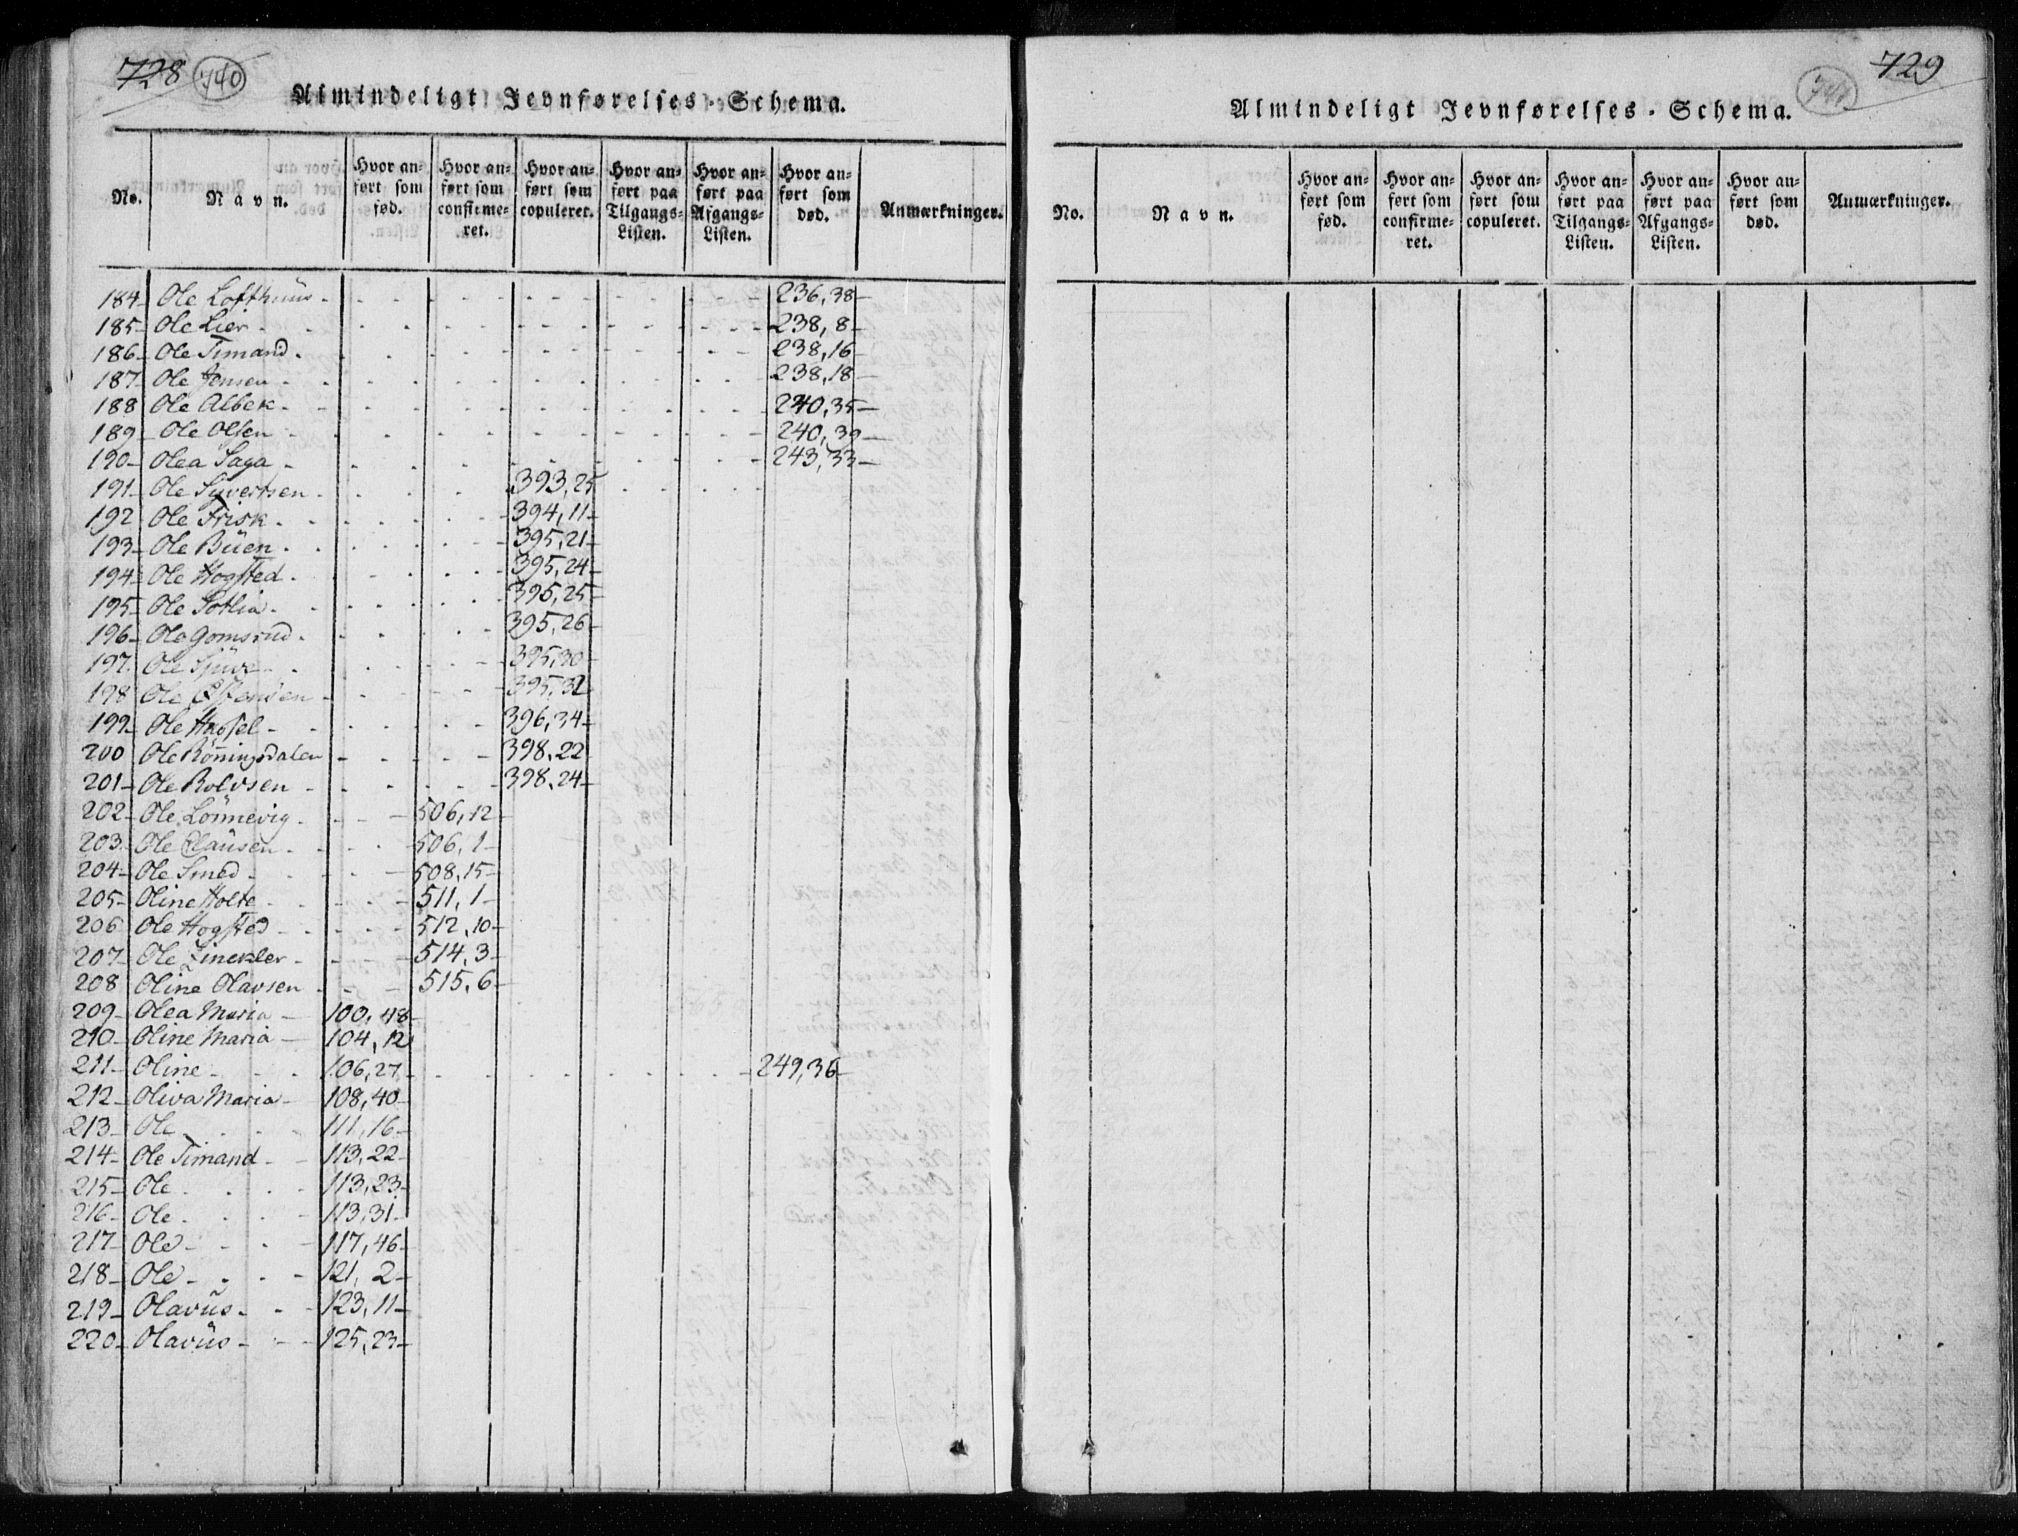 728 740
Almindeligt Jevnførelses-Schema.
No. Navn. Hvor anført som fød. Hvor anført som confirmeret. Hvor anført som copuleret. Hvor anført paa Tilgangs-Listen. Hvor anført paa Afgangs-Listen. Hvor anført som død. Anmærkninger.
184 Ole Lofthuus 236,38
185 Ole Lier 238,8
186 Ole Timand 238,16
187 Ole Hansen 238,18
188 Ole Albek 240,35
189 Ole Olsen 240,39
190 Olea Saga 243,33
191 Ole Syvertsen 393,25
192 Ole Frisk 394,11
193 Ole Büen 395,21
194 Ole Hogsted 395,24
195 Ole Sotlia 395,25
196 Ole Gomsrud 395,26
197 Ole Tjüve 395,30
198 Ole 395,31
199 Ole Hassel 396,34
200 Ole Rönningsdalen 398,22
201 Ole Rolvsen 398,24
202 Ole Lönnevig 506,12
203 Ole Clausen 506,1
204 Ole Smed 508,15
205 Oline Holte 511,1
206 Ole Hogsted 512,10
207 Ole Zinckler 514,3
208 Oline Olavsen 515,6
209 Olea Maria 100,48
210 Oline Maria 104,12
211 Oline 106,27 249,36
212 Oliva Maria 108,40
213 Ole 111,16
214 Ole Timand 113,22
215 Ole 113,23
216 Ole 113,31
217 Ole 117,46
218 Ole 121,2
219 Olavüs 123,11
220 Olavüs 125,23
729 741
Almindeligt Jevnførelses-Schema.
No. Navn. Hvor anført som fød. Hvor anført som confirmeret. Hvor anført som copuleret. Hvor anført paa Tilgangs-Listen. Hvor anført paa Afgangs-Listen. Hvor anført som død. Anmærkninger.